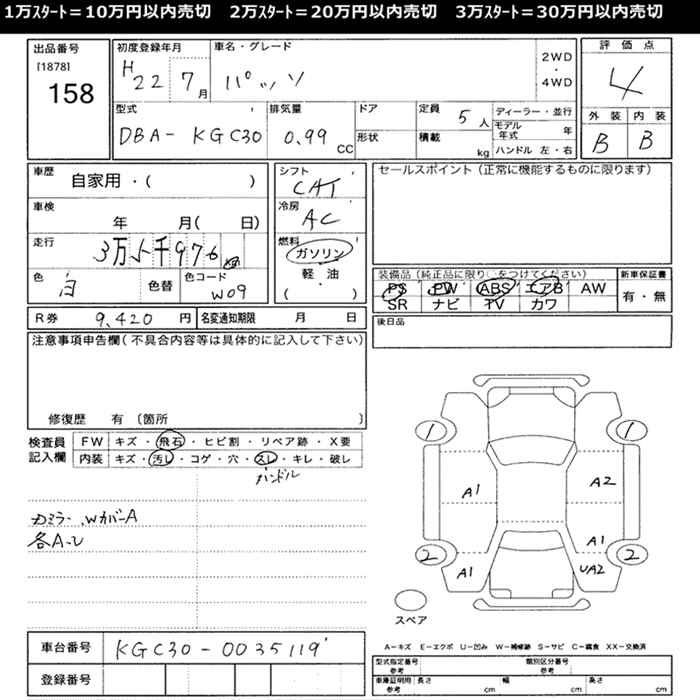 1万ｽﾀｰﾄ＝10万円以内売切　2万ｽﾀｰﾄ＝20万円以内売切　3万ｽﾀｰﾄ＝30万円以内売切
出品番号 初度登録年月 車名・グレード 2WD・4WD 評価点
[1878]
158 H22 7月 パッソ 4
型式 排気量 ドア 定員 5人 ディーラー・並行 外装 内装
DBA-KGC30 0.99 CC 形状 積載 kg モデル年式 年 B B
ハンドル 左・右
車歴 自家用・( ) シフト CAT セールスポイント（正常に機能するものに限ります）
車検 年 月( 日) 冷房 AC
走行 3万 千976 燃料 ガソリン
軽・油
( )
色 白 色替 色コード W09
装備品（純正品に限り○をつけてください） 新車保証書
PS PW ABS エアB AW 有・無
SR ナビ TV カワ
R券 9,420円 名変通知期限 月 日 後日品
注意事項申告欄（不具合内容等は具体的に記入して下さい）
修復歴 有 〔箇所 〕
検査員記入欄 FW キズ・飛石・ヒビ割・リペア跡・X要
内装 キズ・汚レ・コゲ・穴・スレ・キレ・破レ
ハンドル
カミラー、WカバーA
各A-U
1 1
A1 A2
A1
2 2
A1 UA2
スペア
A－キズ E－エクボ U－凹み W－補修跡 S－サビ C－腐食 XX－交換済
車台番号 KGC30-0035119
登録番号
型式指定番号 参考 類別区分番号 参考
車庫証明用 参考 長さ cm 幅 cm 高さ cm